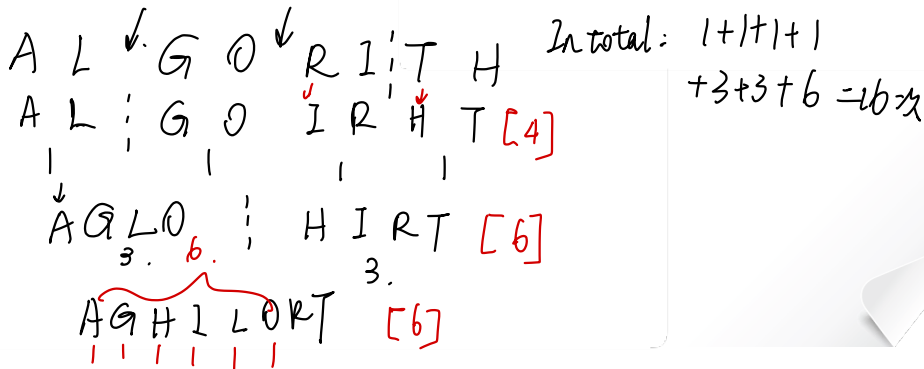 A L G O R I T H
In total: 1+1+1+1
+3+3+6 =16次
A L G O I R H T [4]
1 1 1 1
A G L O H I R T [6]
3. 6. 3.
A G H I L O R T [6]
1 1 1 1 1 1